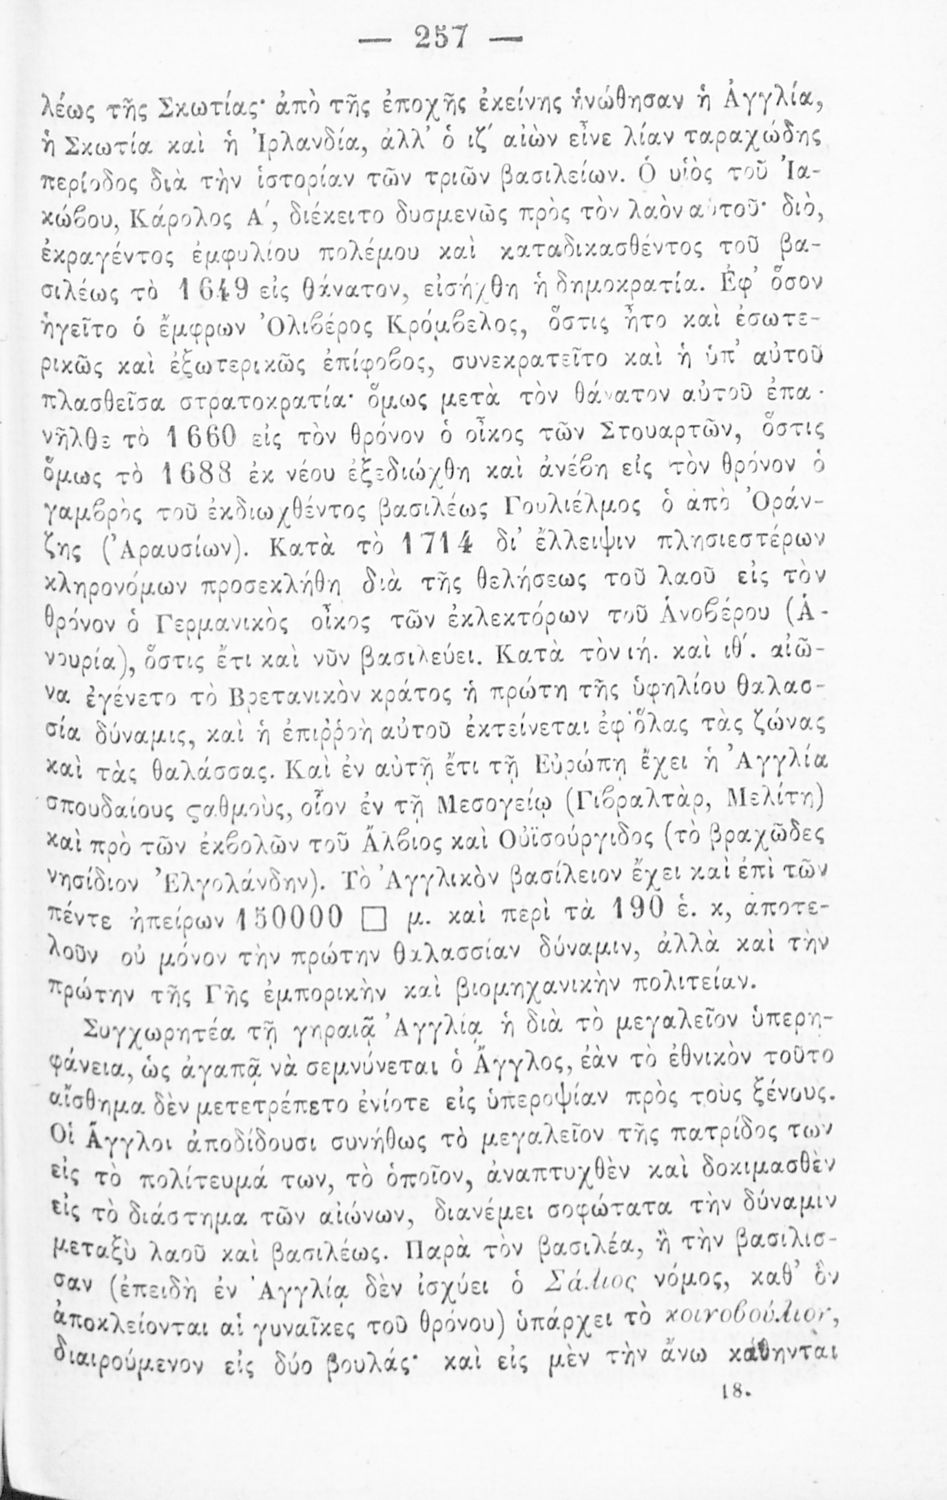 — 257 —
λέως τῆς Σκωτίας· ἀπὸ τῆς ἐποχῆς ἐκείνης ἡνώθησαν ἡ Ἀγγλία,
ἡ Σκωτία καὶ ἡ Ἰρλανδία, ἀλλ’ ὁ ιζ′ αἰὼν εἶνε λίαν ταραχώδης
περίοδος διὰ τὴν ἱστορίαν τῶν τριῶν βασιλείων. Ὁ υἱὸς τοῦ Ἰα-
κώβου, Κάρολος Α′, διέκειτο δυσμενῶς πρὸς τὸν λαὸν αὑτοῦ· διὸ,
ἐκραγέντος ἐμφυλίου πολέμου καὶ καταδικασθέντος τοῦ βα-
σιλέως τὸ 1649 εἰς θάνατον, εἰσήχθη ἡ δημοκρατία. Ἐφ’ ὅσον
ἡγεῖτο ὁ ἔμφρων Ὀλιβέρος Κρόμβελος, ὅστις ἦτο καὶ ἐσωτε-
ρικῶς καὶ ἐξωτερικῶς ἐπίφοβος, συνεκρατεῖτο καὶ ἡ ὑπ’ αὐτοῦ
πλασθεῖσα στρατοκρατία· ὅμως μετὰ τὸν θάνατον αὐτοῦ ἐπα-
νῆλθε τὸ 1660 εἰς τὸν θρόνον ὁ οἶκος τῶν Στουαρτῶν, ὅστις
ὅμως τὸ 1688 ἐκ νέου ἐξεδιώχθη καὶ ἀνέβη εἰς τὸν θρόνον ὁ
γαμβρὸς τοῦ ἐκδιωχθέντος βασιλέως Γουλιέλμος ὁ ἀπὸ Ὀράν-
ζης (Ἀραυσίων). Κατὰ τὸ 1714 δι’ ἔλλειψιν πλησιεστέρων
κληρονόμων προσεκλήθη διὰ τῆς θελήσεως τοῦ λαοῦ εἰς τὸν
θρόνον ὁ Γερμανικὸς οἶκος τῶν ἐκλεκτόρων τοῦ Ἀνοβέρου (Ἁ-
νουρία), ὅστις ἔτι καὶ νῦν βασιλεύει. Κατὰ τὸν ιή. καὶ ιθ′. αἰῶ-
να ἐγένετο τὸ Βρετανικὸν κράτος ἡ πρώτη τῆς ὑφηλίου θαλασ-
σία δύναμις, καὶ ἡ ἐπιῤῥοὴ αὐτοῦ ἐκτείνεται ἐφ’ ὅλας τὰς ζώνας
καὶ τὰς θαλάσσας. Καὶ ἐν αὐτῇ ἔτι τῇ Εὐρώπῃ ἔχει ἡ Ἀγγλία
σπουδαίους ϛαθμοὺς, οἷον ἐν τῇ Μεσογείῳ (Γιβραλτὰρ, Μελίτη)
καὶ πρὸ τῶν ἐκβολῶν τοῦ Ἄλβιος καὶ Οὐϊσούργιδος (τὸ βραχῶδες
νησίδιον Ἑλγολάνδην). Τὸ Ἀγγλικὸν βασίλειον ἔχει καὶ ἐπὶ τῶν
πέντε ἠπείρων 150000 □ μ. καὶ περὶ τὰ 190 ἑ. κ, ἀποτε-
λοῦν οὐ μόνον τὴν πρώτην θαλασσίαν δύναμιν, ἀλλὰ καὶ τὴν
πρώτην τῆς Γῆς ἐμπορικὴν καὶ βιομηχανικὴν πολιτείαν.
Συγχωρητέα τῇ γηραιᾷ Ἀγγλίᾳ ἡ διὰ τὸ μεγαλεῖον ὑπερη-
φάνεια, ὡς ἀγαπᾷ νὰ σεμνύνεται ὁ Ἄγγλος, ἐὰν τὸ ἐθνικὸν τοῦτο
αἴσθημα δὲν μετετρέπετο ἐνίοτε εἰς ὑπεροψίαν πρὸς τοὺς ξένους.
Οἱ Ἄγγλοι ἀποδίδουσι συνήθως τὸ μεγαλεῖον τῆς πατρίδος των
εἰς τὸ πολίτευμά των, τὸ ὁποῖον, ἀναπτυχθὲν καὶ δοκιμασθὲν
εἰς τὸ διάστημα τῶν αἰώνων, διανέμει σοφώτατα τὴν δύναμιν
μεταξὺ λαοῦ καὶ βασιλέως. Παρὰ τὸν βασιλέα, ἢ τὴν βασίλισ-
σαν (ἐπειδὴ ἐν Ἀγγλίᾳ δὲν ἰσχύει ὁ Σάλιος νόμος, καθ’ ὃν
ἀποκλείονται αἱ γυναῖκες τοῦ θρόνου) ὑπάρχει τὸ κοινοβούλιον,
διαιρούμενον εἰς δύο βουλάς· καὶ εἰς μὲν τὴν ἄνω κάθηνται
18.